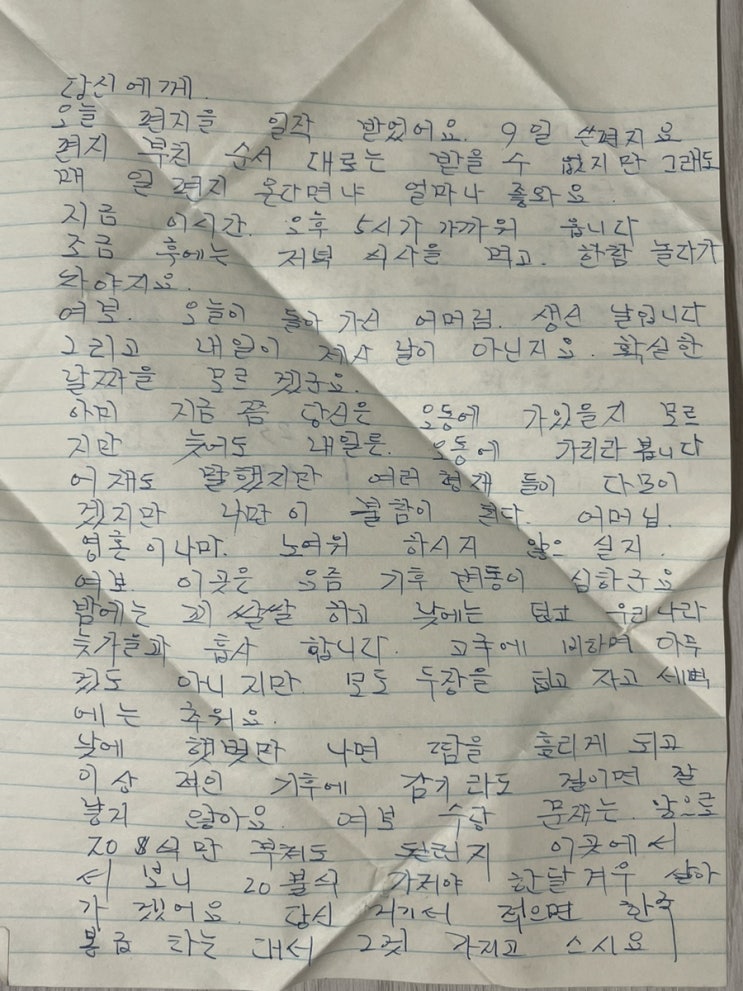 당신에께.
오늘 편지을 일작 받었어요. 9일 쓴편지요
편지 부친 순서 대로는 받을 수 없지만 그래도
매 일 편지 온다면야 얼마나 좋와요.
지금 이시간. 오후 5시가 가까워 옵니다
조금 후에는 저녁 식사을 먹고. 한참 놀다가
와야지요.
여보. 오늘이 돌아가신 어머님. 생신 날입니다
그리고 내일이 제사 날이 아닌지요. 확실한
날짜을 모르 겠군요.
아마 지금 쯤 당신은 오동에 가있을지 모르
지만 늦어도 내일은. 오동에 가리라 봅니다
어재도 말했지만 여러 형재 들이 다모이
겠지만 나만이 불참이 된다. 어머님.
영혼이나마. 노여워 하시지 않으 실지.
여보. 이곳은 요즘 기후 변동이 심하군요
밤에는 꾀 쌀쌀 하고 낮에는 덥고 우리나라
늦가을과 흡사 합니다. 고국에 비하여 아무
것도 아니지만. 모포 두장을 덥고 자고 새벽
에는 추워요.
낮에 햇빛만 나면 땀을 흘리게 되고
이상 적인 기후에 감기라도 걸이면 잘
낳지 않아요. 여보 수당 문재는. 앞으로
70$식만 부쳐도 될런지 이곳에서
서 보니 20불식 가져야 한달 겨우 살아
가 겠어요. 당신 거기서 적으면 한국
봉급 타는 대서 그것 가지고 쓰시요